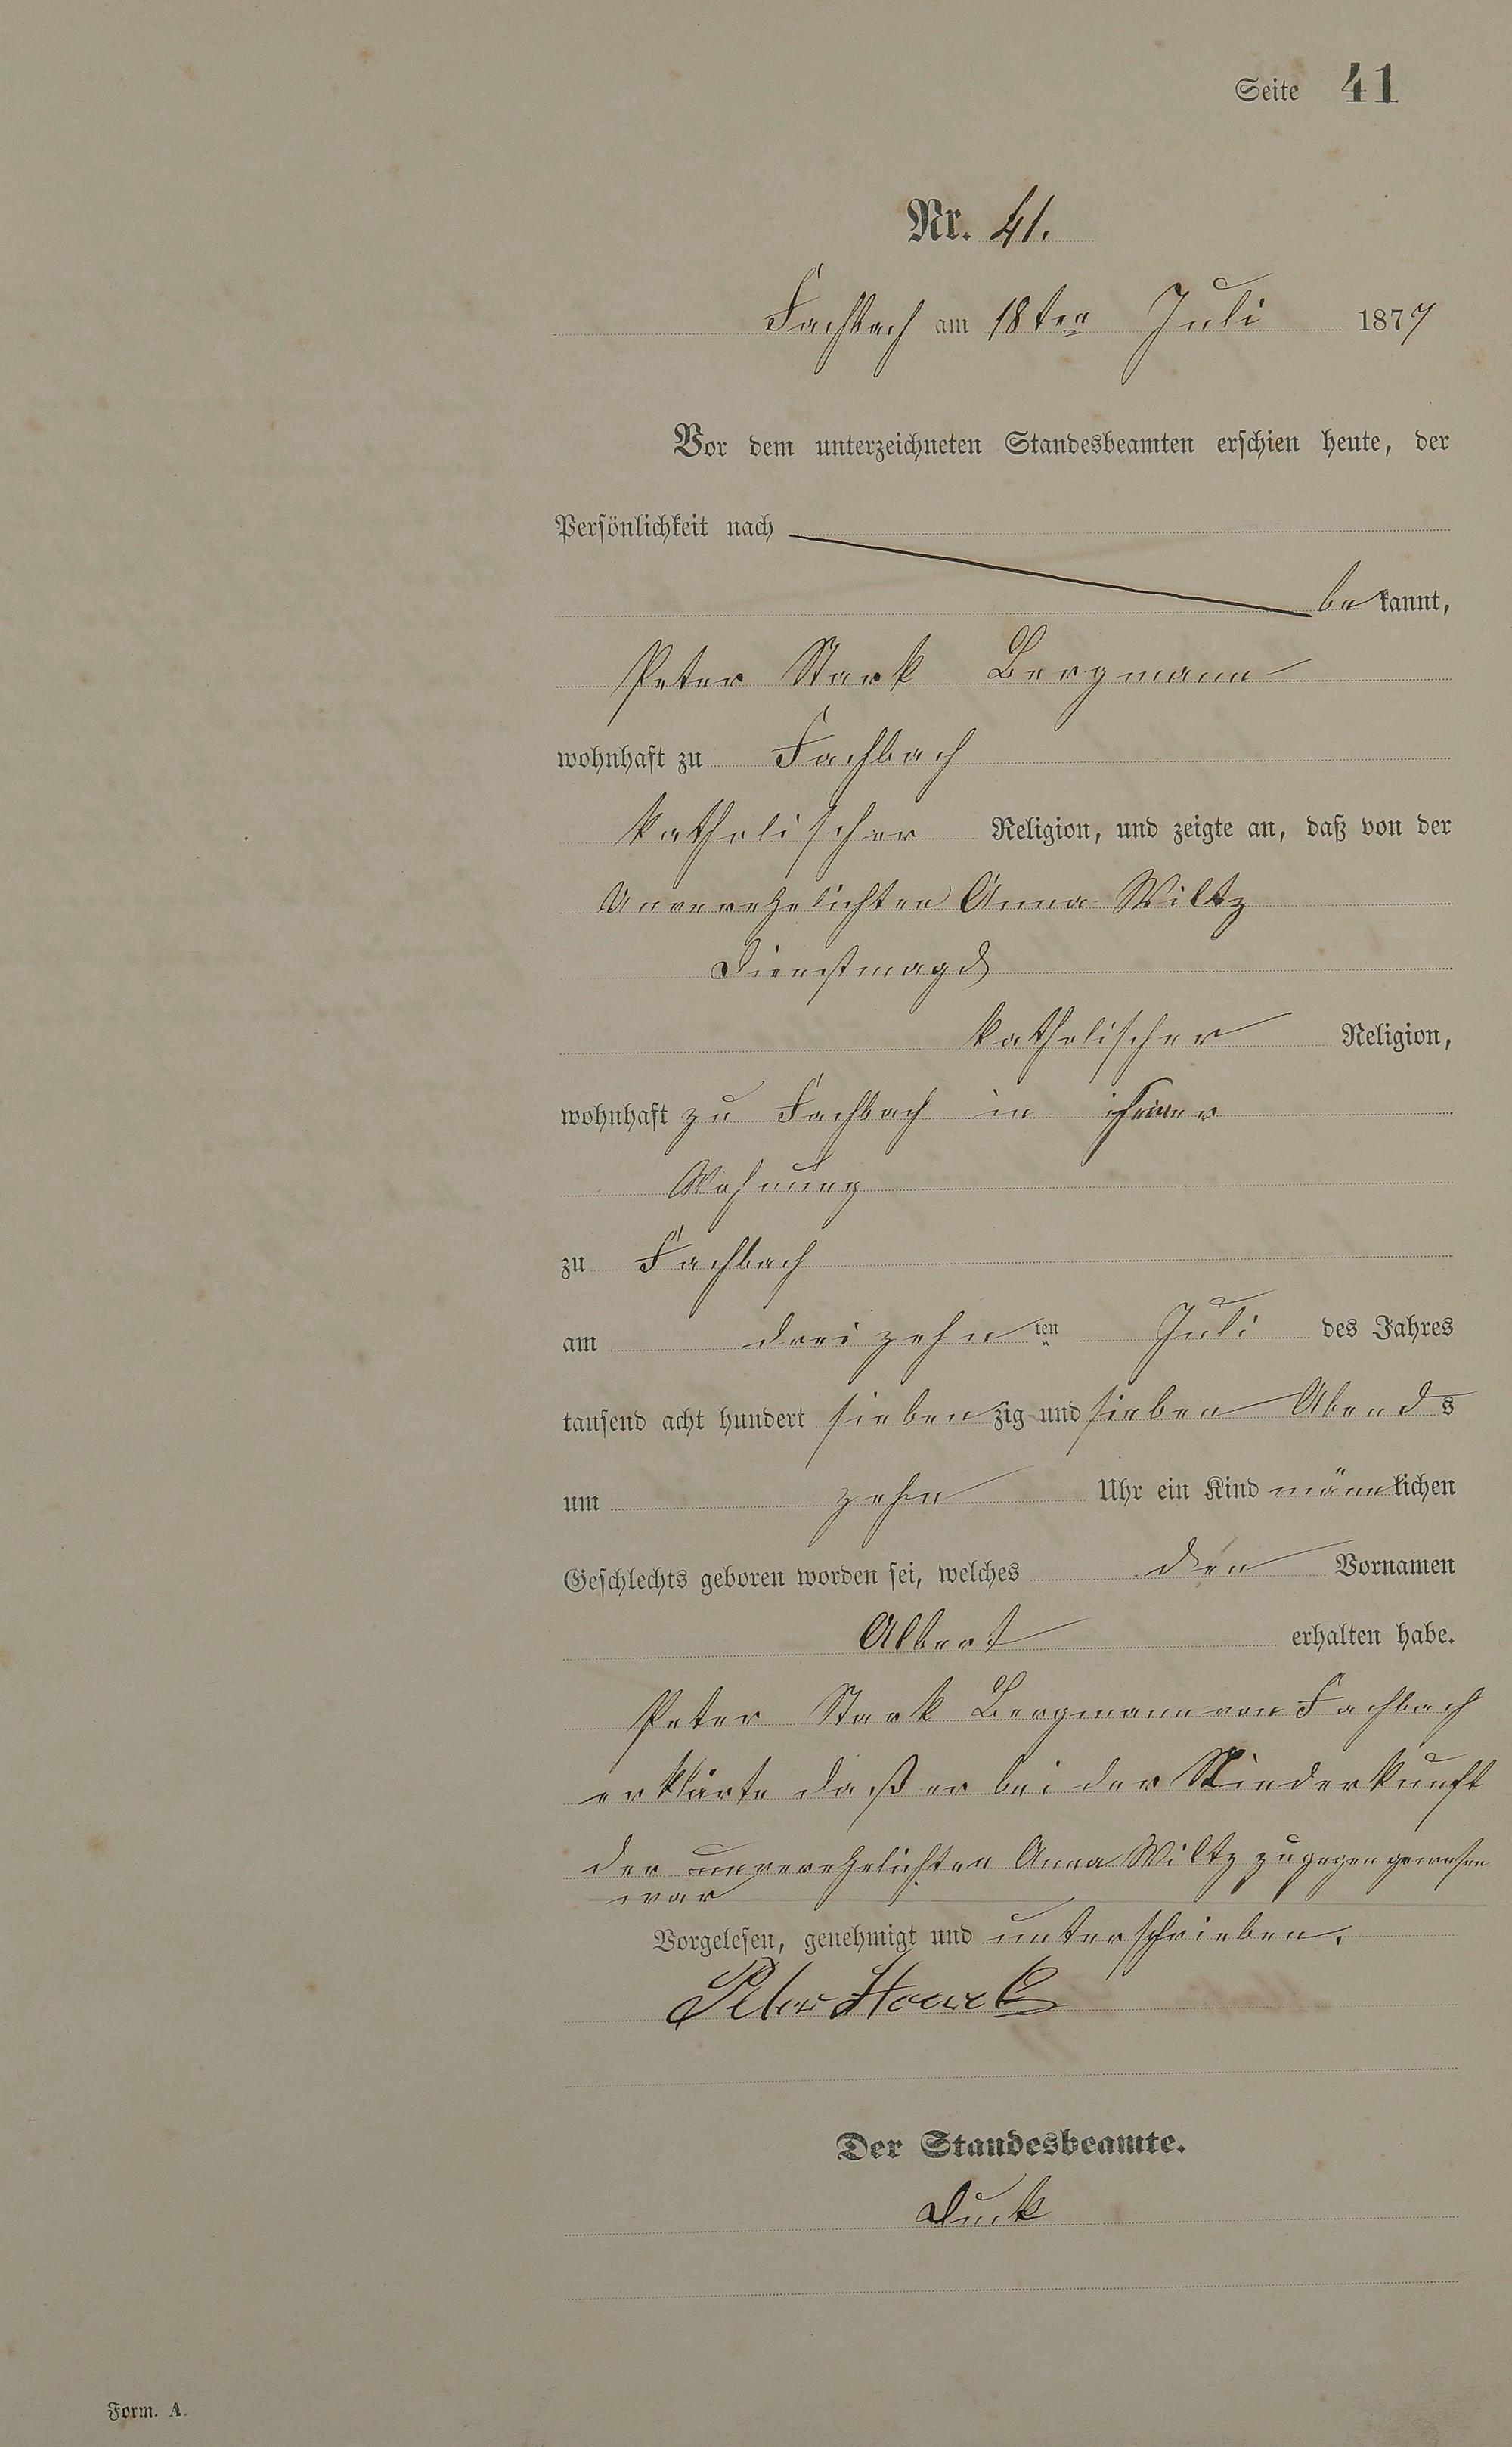 Seite 41
Nr. 41.
Fachbach am 18ten Juli 1877
Vor dem unterzeichneten Standesbeamten erschien heute, der
Persönlichkeit nach
be kannt,
Peter Stark Bergmann
wohnhaft zu Fachbach
katholischer Religion, und zeigte an, daß von der
Unverehelichten Anna Wiltz
Dienstmagd
katholischer Religion,
wohnhaft zu Fachbach in seiner
Wohnung
zu Fachbach
am dreizehn ten Juli des Jahres
tausend acht hundert sieben zig und sieben Abends
um zehn Uhr ein Kind männlichen
Geschlechts geboren worden sei, welches den Vornamen
Albert erhalten habe.
Peter Stark Bergmann von Fachbach
erklärte daß er bei der Niederkunft
der unverehelichten Anna Wiltz zugegen gewesen
war
Vorgelesen, genehmigt und unterschrieben.
Peter Starck
Der Standesbeamte.
Form. A.